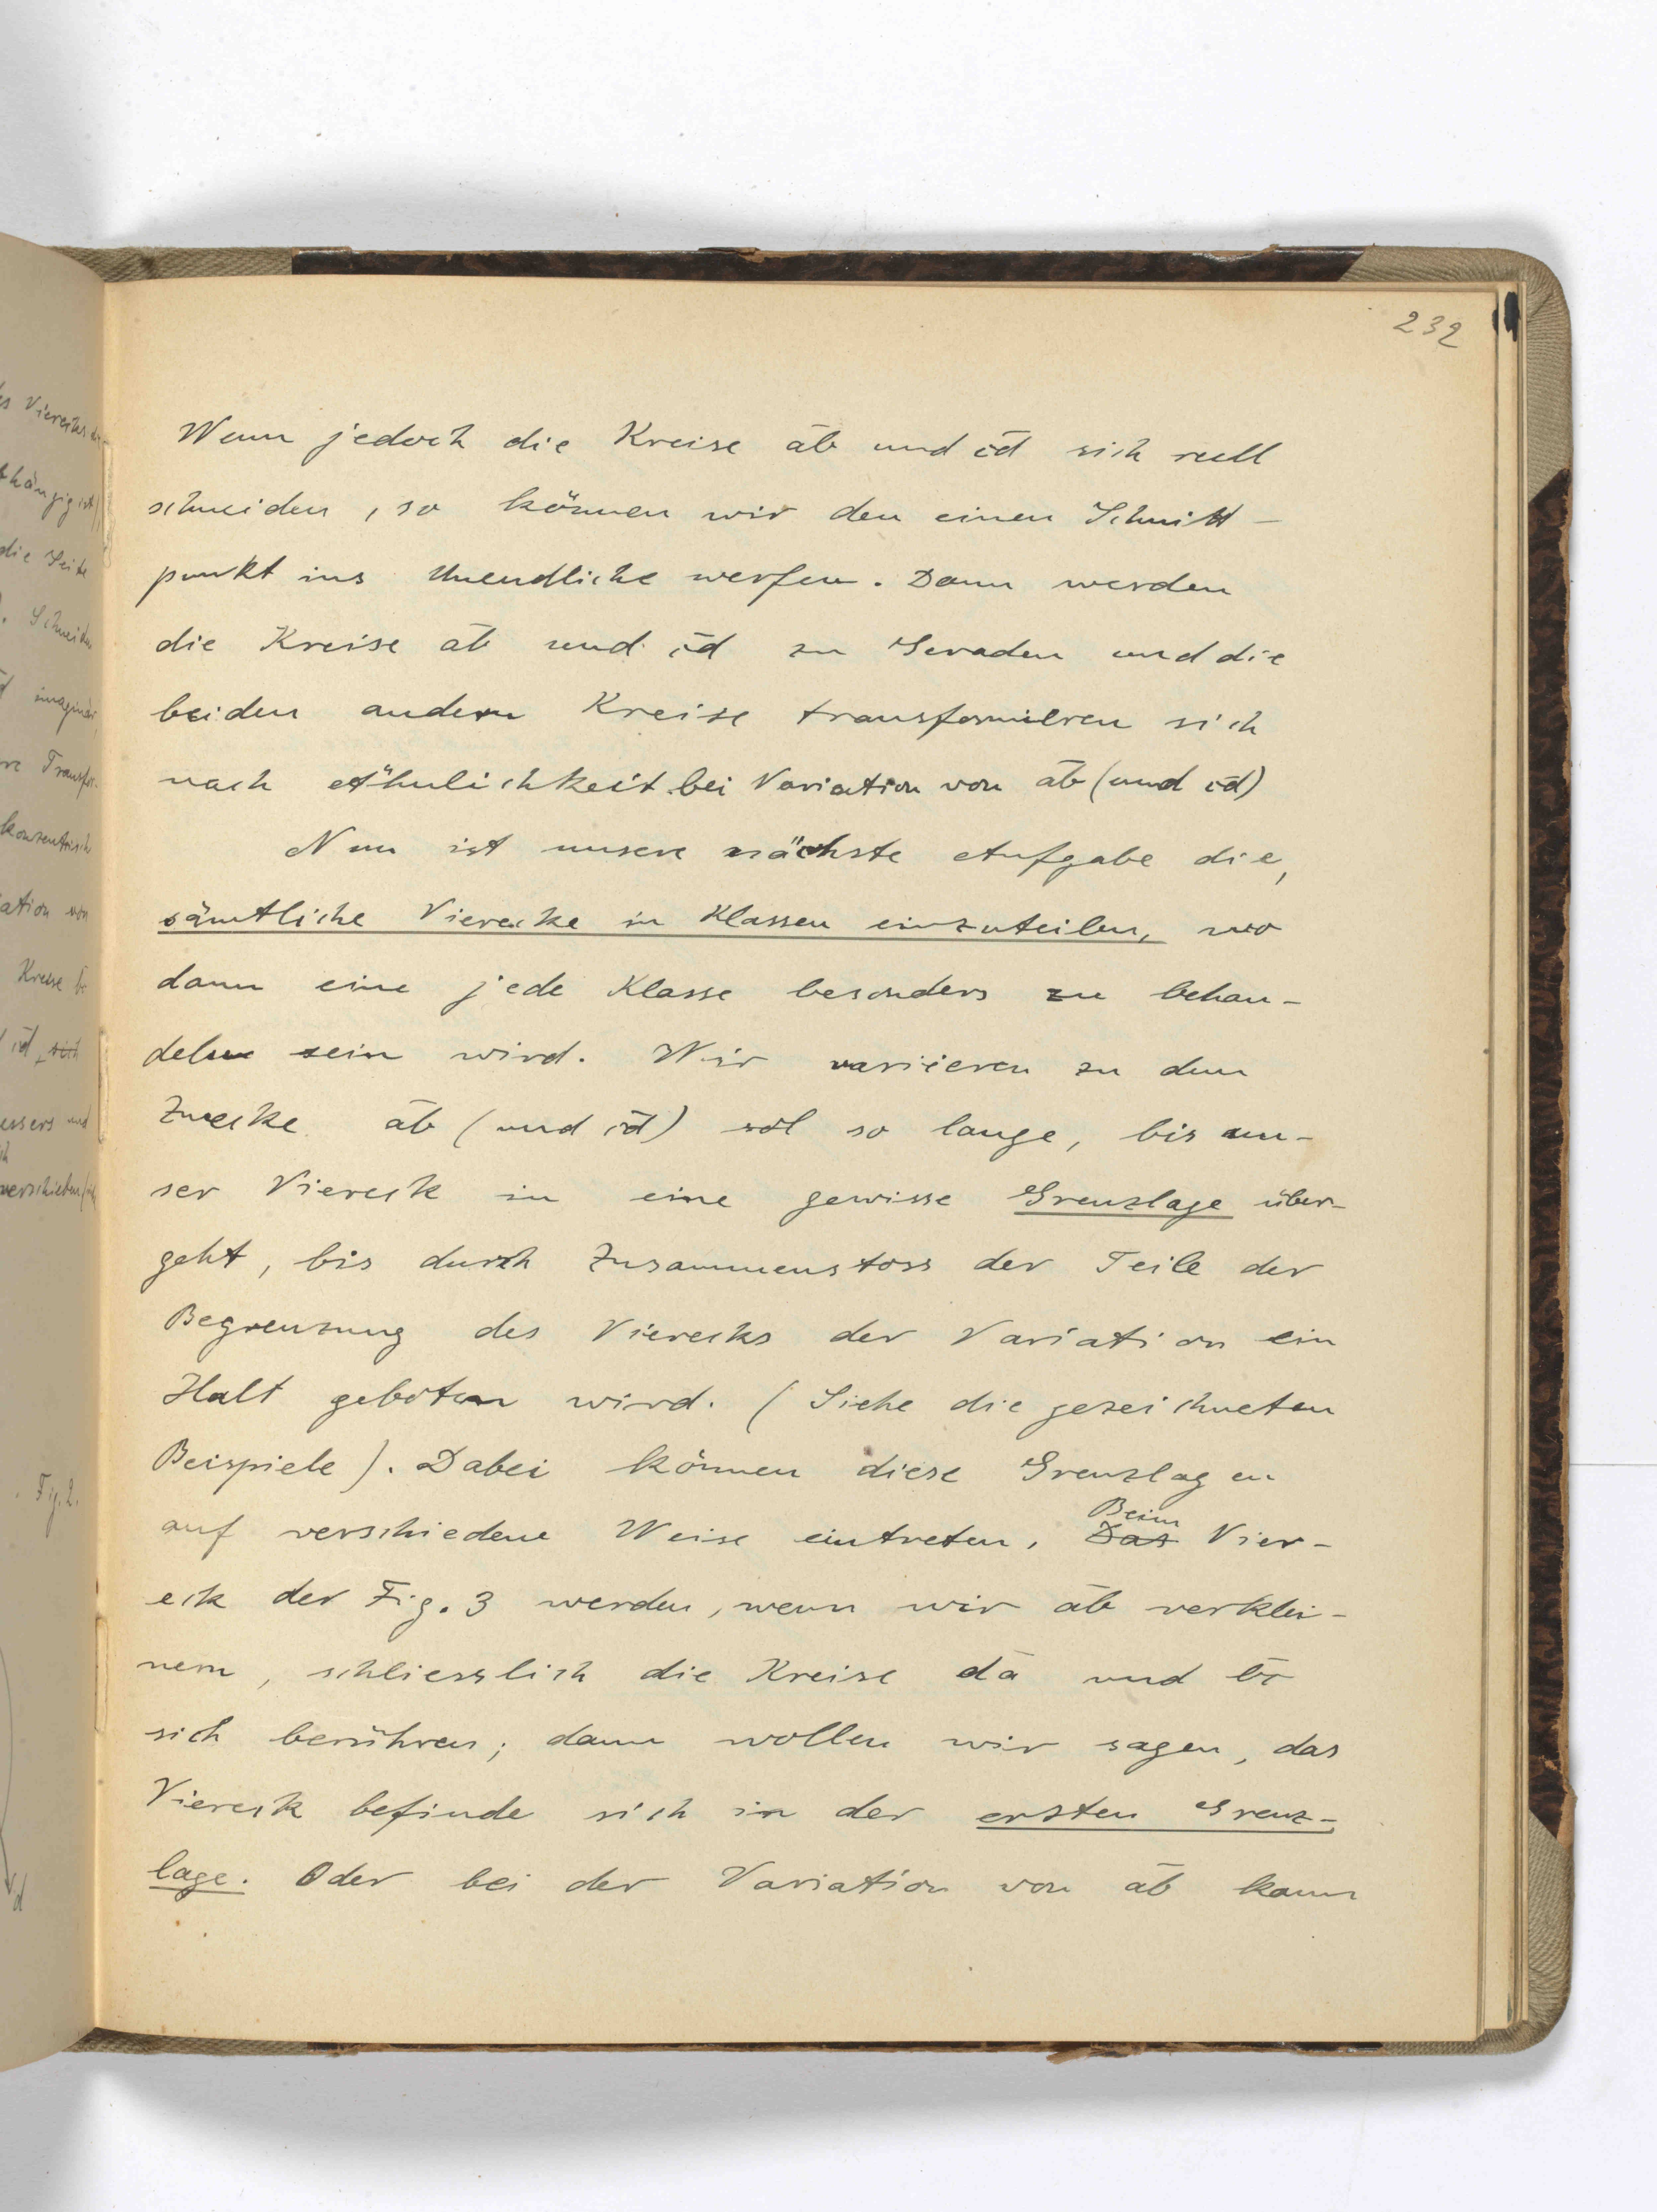 232
Wenn jedoch die Kreise a̅b̅ und c̅d̅ sich reell
schneiden, so können wir den einen Schnitt-
punkt ins Unendliche werfen. Dann werden
die Kreise a̅b̅ und c̅d̅ zu Geraden und die
beiden andern Kreise transformieren sich
nach Ähnlichkeit bei Variation von a̅b̅ (und c̅d̅)
Nun ist unsere nächste Aufgabe die,
sämtliche Vierecke in Klassen einzuteilen, wo
dann eine jede Klasse besonders zu behan-
deln sein wird. Wir variieren zu dem
Zwecke a̅b̅ (und c̅d̅) so lange, bis un-
ser Viereck in eine gewisse Grenzlage über-
geht, bis durch Zusammenstoss der Teile der
Begrenzung des Vierecks der Variation ein
Halt geboten wird. (Siehe die gezeichneten
Beispiele). Dabei können diese Grenzlagen
auf verschiedene Weise eintreten. Das Beim Vier-
eck der Fig. 3 werden, wenn wir a̅b̅ verklei-
nern, schliesslich die Kreise d̅a̅ und b̅c̅
sich berühren; dann wollen wir sagen, das
Viereck befinde sich in der ersten Grenz-
lage. Oder bei der Variation von a̅b̅ kann
des Vierecks
die Seite
Schneiden
imaginär,
Transfor-
konzentrisch
ation von
Kreise
c̅d̅
und
verschieben
Fig. 2.
d